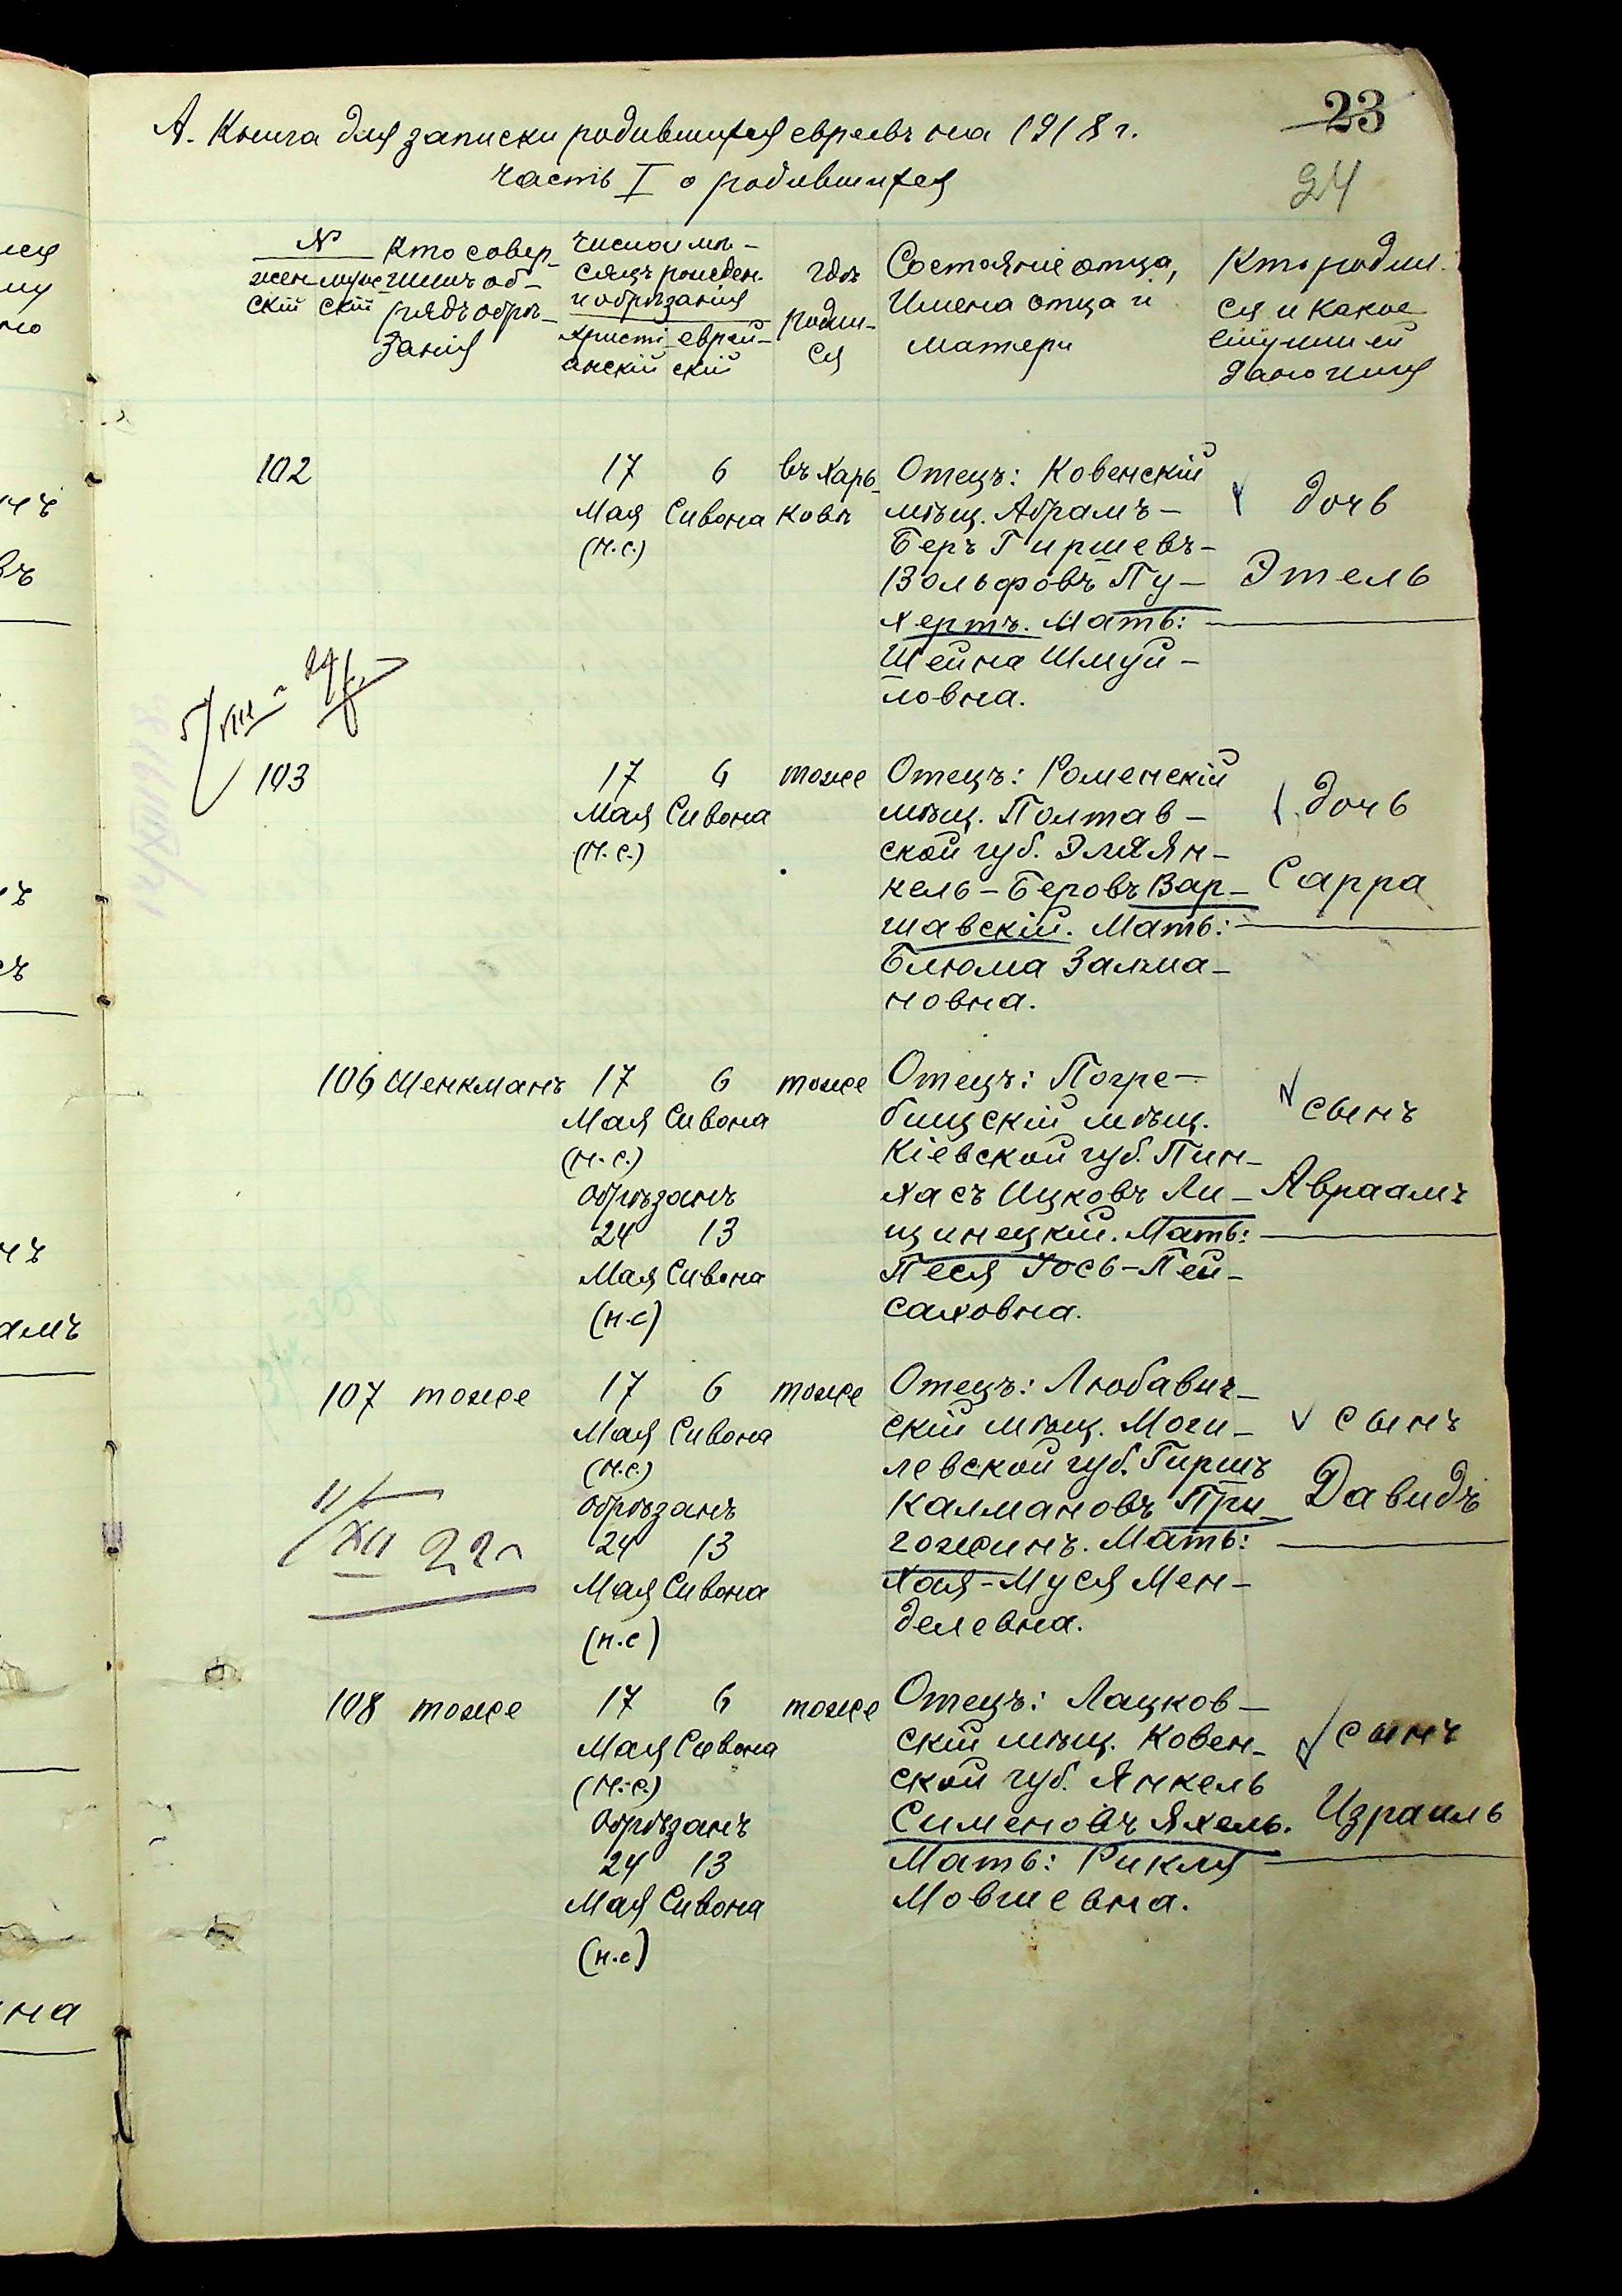 23
А. Книга для записки родившихся евреевъ на 1918 г.
часть I о родившихся
24
№
женскій
мужескій
Кто совер-
шилъ об-
рядъ обрѣ-
занія
Число и мѣ-
сяцъ рожден.
и обрѣзанія
Христі-
анскій
еврей-
скій
гдѣ
родил-
ся
Состояніе отца,
Имена отца и
матери
Кто родил-
ся и какое
ему или ей
дано имя
102
17 6
Мая Сивона
(н.с.)
въ Харь-
ковѣ
Отецъ: Ковенскій
мѣщ. Абрамъ-
Беръ Гиршевъ-
Вольфовъ Пу-
хертъ. Мать:
Шейна Шмуй-
ловна.
дочь
Этель
5/VIII
103
17 6
Мая Сивона
(н.с.)
тоже
Отецъ: Роменскій
мѣщ. Полтав-
ской губ. Эля Ян-
кель-Беровъ Вар-
шавскій. Мать:
Блюма Залма-
новна.
дочь
Сарра
106 Шенкманъ
17 6
Мая Сивона
(н.с.)
Обрѣзанъ
24 13
Мая Сивона
(н.с)
тоже
Отецъ: Погре-
бищскій мѣщ.
Кіевской губ. Пин-
хасъ Ицковъ Ли-
щинецкій. Мать:
Песя Йось-Пей-
саховна.
сынъ
Авраамъ
107 тоже
17 6
Мая Сивона
(н.с.)
Обрѣзанъ
24 13
Мая Сивона
(н.с)
тоже
Отецъ: Любавич-
скій мѣщ. Моги-
левской губ. Гиршъ
Калмановъ При-
гожинъ. Мать:
Хая-Муся Мен-
делевна.
сынъ
Давидъ
11/XII 22 г
108 тоже
17 6
Мая Сивона
(н.с.)
Обрѣзанъ
24 13
Мая Сивона
(н.с)
тоже
Отецъ: Лацков-
скій мѣщ. Ковен-
ской губ. Янкель
Сименовъ Яхель.
Мать: Рикля
Мовшевна.
сынъ
Израиль